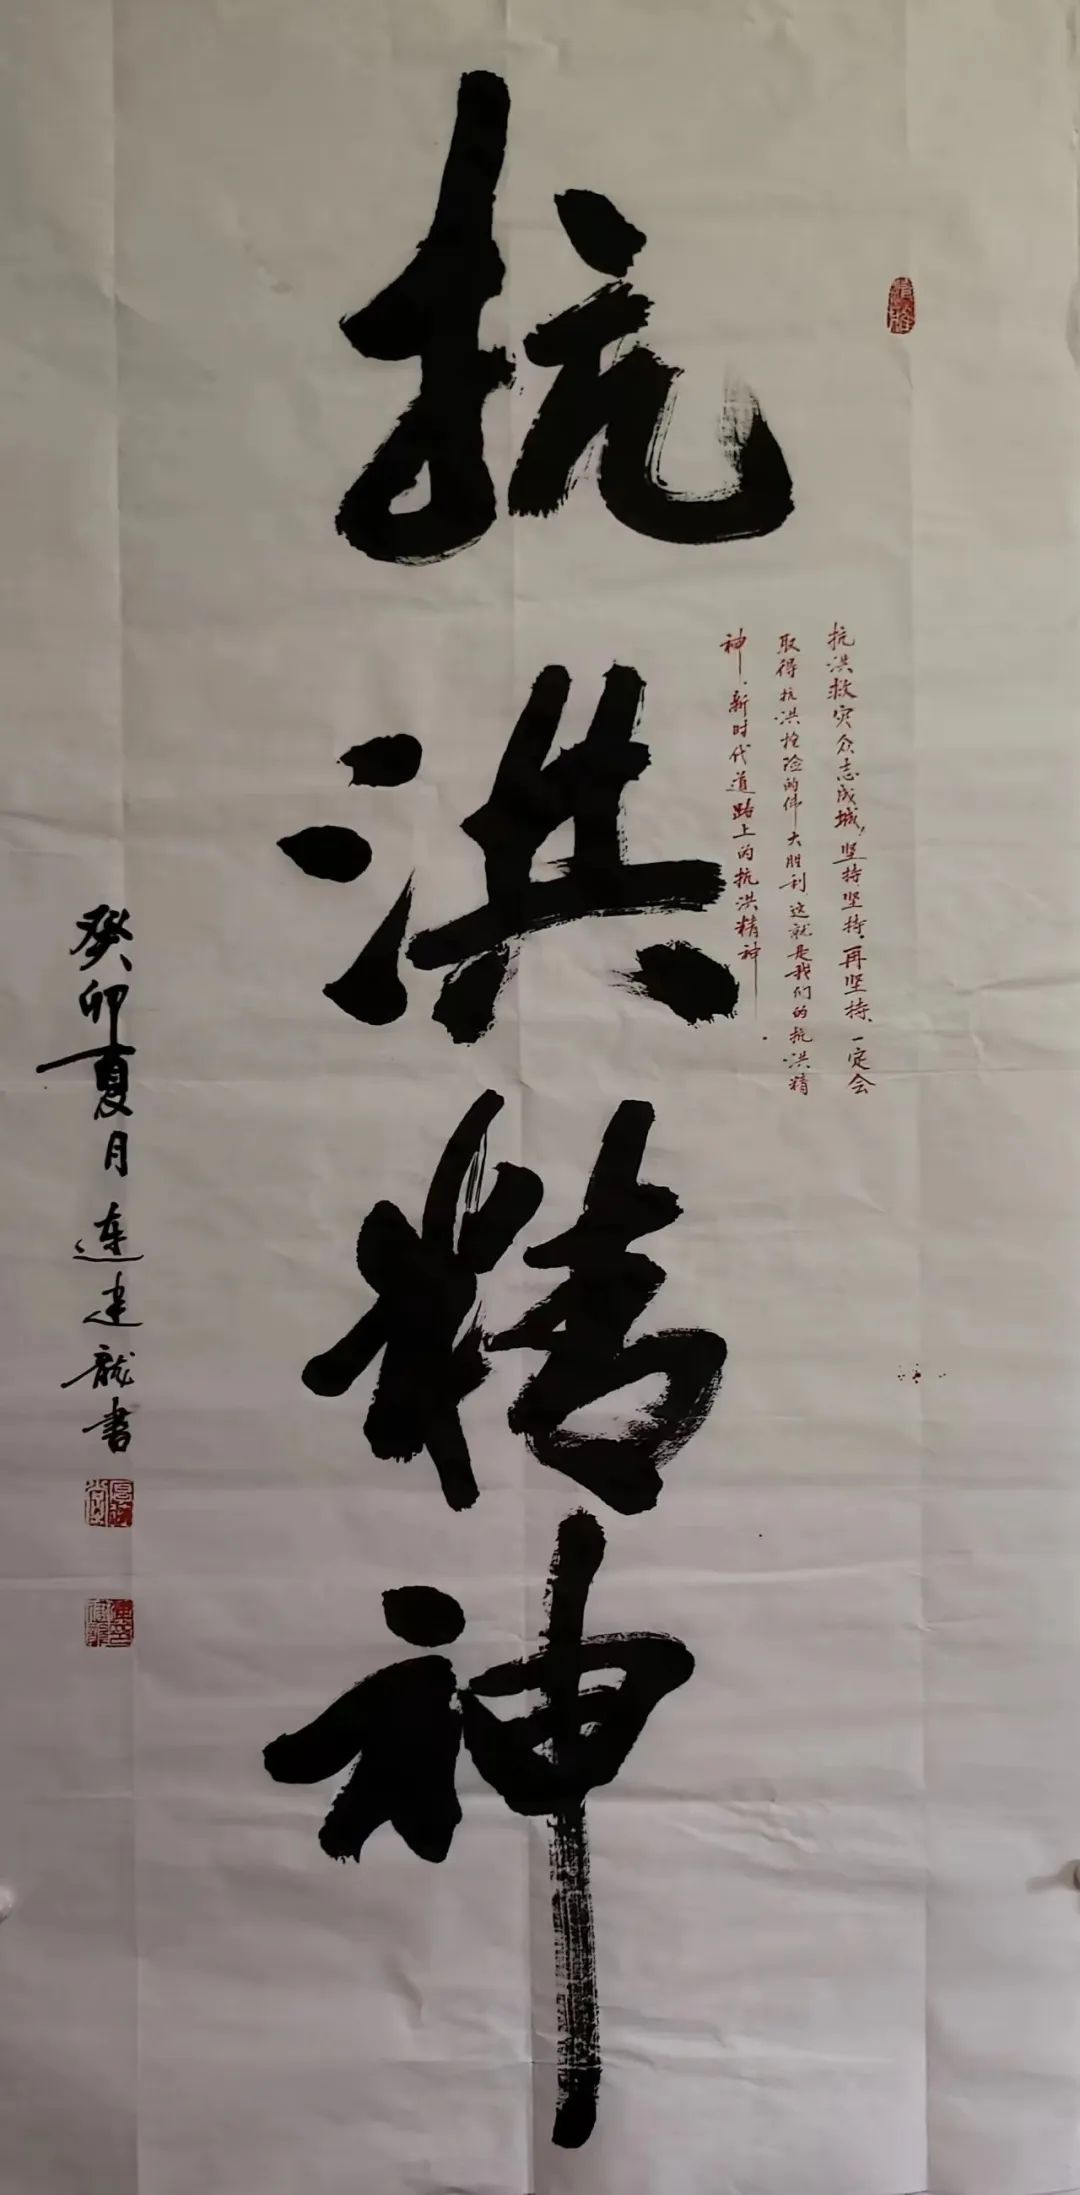 抗洪精神
抗洪救灾众志成城，坚持、坚持、再坚持、一定会
取得抗洪抢险的伟大胜利这就是我们的抗洪精
神、新时代道路上的抗洪精神。
癸卯夏月连建龙书